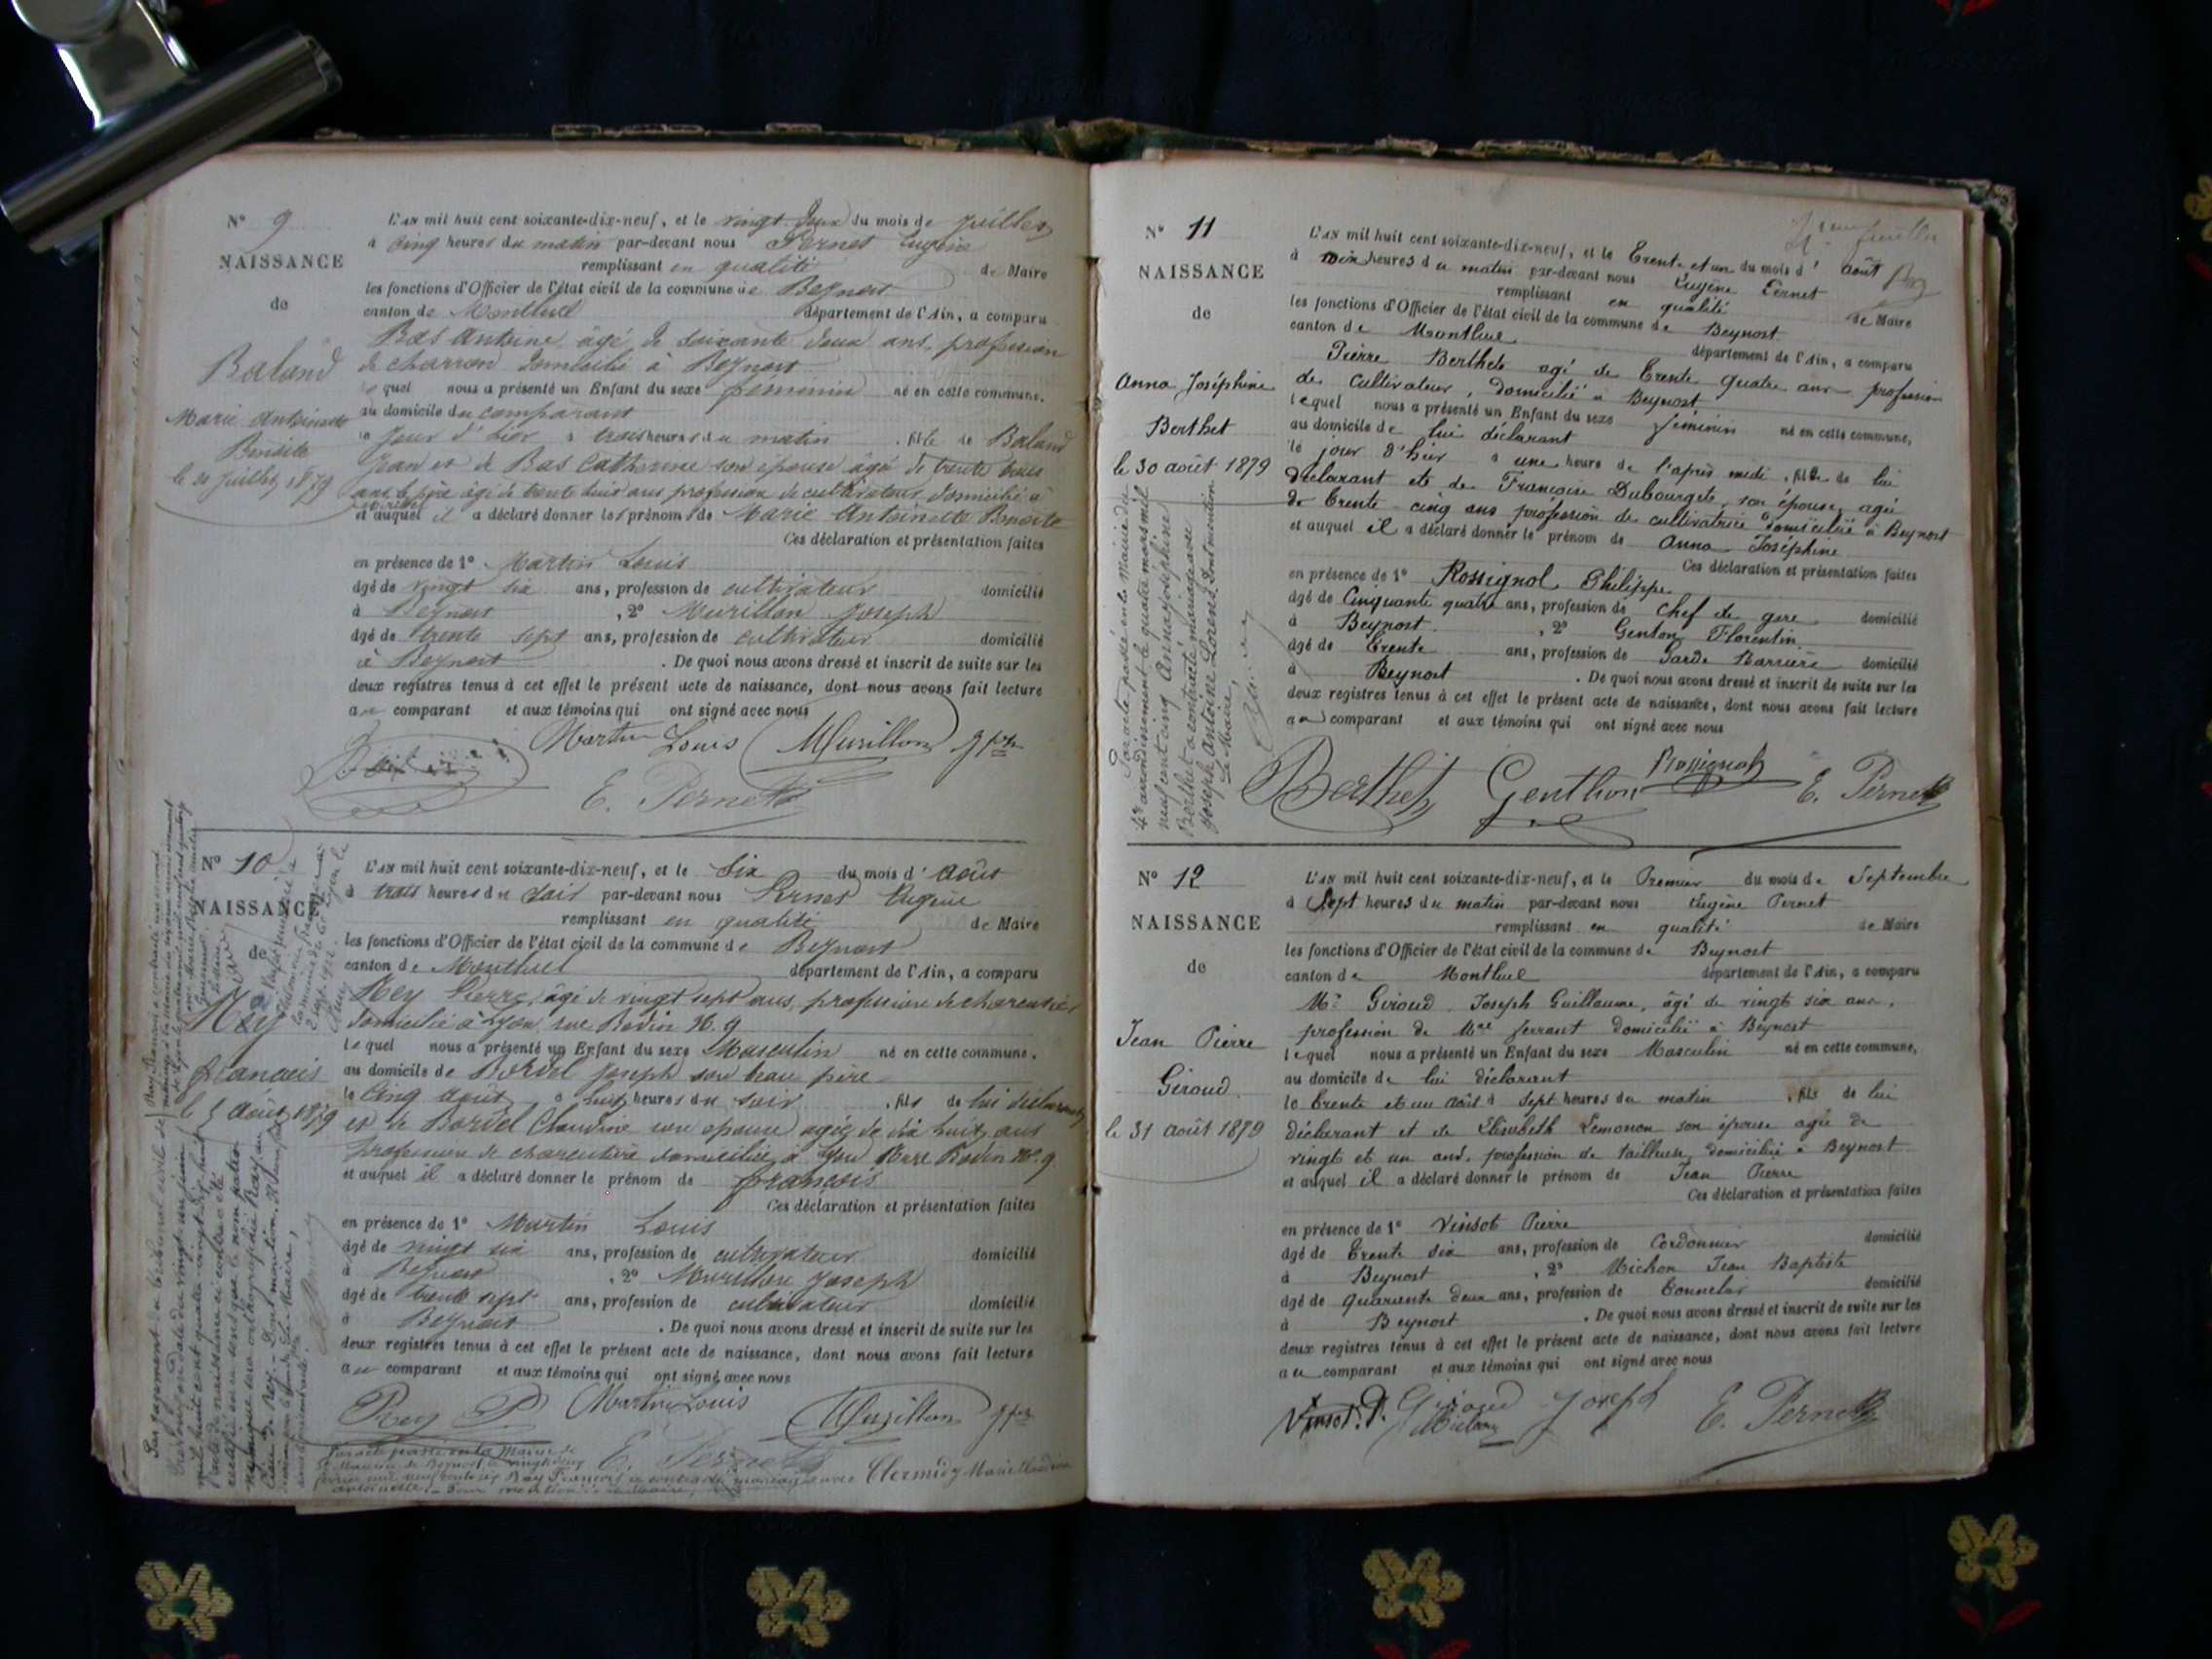 N° 9
NAISSANCE
de
Baland
Marie Antoinette
Benoite
le 21 juillet 1879
L'AN mil huit cent soixante-dix-neuf, et le vingt deux du mois de juillet
à cinq heures du matin par-devant nous Pernet Eugène
remplissant en qualité de Maire
les fonctions d'Officier de l'état civil de la commune de Beynost
canton de Montluel département de l'Ain, a comparu
Bas Antoine âgé de soixante deux ans, profession
de charron domicilié à Beynost
lequel nous a présenté un Enfant du sexe feminin né en cette commune,
au domicile du comparant
le jour d'hier à trois heures du matin, fille de Baland
Jean et de Bas Catherine son épouse âgé de trente trois
ans le père âgé de trente huit ans profession de cultivateur domicilié à
et auquel il a déclaré donner les prénoms de Marie Antoinette Benoite
Ces déclaration et présentation faites
en présence de 1° Martin Louis
âgé de vingt six ans, profession de cultivateur domicilié
à Beynost, 2° Murillon Joseph
âgé de trente sept ans, profession de cultivateur domicilié
à Beynost. De quoi nous avons dressé et inscrit de suite sur les
deux registres tenus à cet effet le présent acte de naissance, dont nous avons fait lecture
au comparant et aux témoins qui ont signé avec nous
Martin Louis Murillon Jph
E. Pernet
N° 10
NAISSANCE
de
Rey
françois
le 5 août 1879
L'AN mil huit cent soixante-dix-neuf, et le six du mois d'août
à trois heures du soir par-devant nous Pernet Eugène
remplissant en qualité de Maire
les fonctions d'Officier de l'état civil de la commune de Beynost
canton de Montluel département de l'Ain, a comparu
Rey Pierre, âgé de vingt sept ans, profession de charcutier
domicilié à Lyon rue Bodin N. 9
lequel nous a présenté un Enfant du sexe Masculin né en cette commune,
au domicile de Bordel Joseph son beau père
le cinq août à huit heures du soir, fils de lui déclarant
et de Bordel Claudine son epouse agée de dix huit ans
profession de charcutière domiciliée à Lyon Rue Bodin N° 9
et auquel il a déclaré donner le prénom de françois
Ces déclaration et présentation faites
en présence de 1° Martin Louis
âgé de vingt six ans, profession de cultivateur domicilié
à Beynost, 2° Murillon Joseph
âgé de trente sept ans, profession de cultivateur domicilié
à Beynost. De quoi nous avons dressé et inscrit de suite sur les
deux registres tenus à cet effet le présent acte de naissance, dont nous avons fait lecture
au comparant et aux témoins qui ont signé avec nous
Rey P Martin Louis Murillon Jph
E. Pernet
N° 11
NAISSANCE
de
Anna Joséphine
Berthet
le 30 août 1879
Par acte passé en la Mairie du
4e arrondissement le quatre mars mil
neuf cent cinq Anna Joséphine
Berthet a contracté mariage avec
Joseph Antoine Lorent. Dont mention
Le Maire,
L'AN mil huit cent soixante-dix-neuf, et le trente et un du mois d'août
à dix heures du matin par-devant nous Eugène Pernet
remplissant en qualité de Maire
les fonctions d'Officier de l'état civil de la commune de Beynost
canton de Montluel département de l'Ain, a comparu
Pierre Berthet agé de trente quatre ans profession
de cultivateur, domicilié à Beynost
lequel nous a présenté un Enfant du sexe féminin né en cette commune,
au domicile de lui déclarant
le jour d'hier à une heure de l'après midi, fille de lui
déclarant et de Françoise Dubourget, son épouse, agée
de trente cinq ans profession de cultivatrice domiciliée à Beynost
et auquel il a déclaré donner le prénom de Anna Joséphine
Ces déclaration et présentation faites
en présence de 1° Rossignol Philippe
âgé de Cinquante quatre ans, profession de chef de gare domicilié
à Beynost, 2° Genton Florentin
âgé de trente ans, profession de Garde Barrière domicilié
à Beynost. De quoi nous avons dressé et inscrit de suite sur les
deux registres tenus à cet effet le présent acte de naissance, dont nous avons fait lecture
au comparant et aux témoins qui ont signé avec nous
Berthet Genthon Rossignol E. Pernet
N° 12
NAISSANCE
de
Jean Pierre
Giroud
le 31 août 1879
L'AN mil huit cent soixante-dix-neuf, et le Premier du mois de Septembre
à sept heures du matin par-devant nous Eugène Pernet
remplissant en qualité de Maire
les fonctions d'Officier de l'état civil de la commune de Beynost
canton de Montluel département de l'Ain, a comparu
Mr Giroud Joseph Guillaume, âgé de vingt six ans,
profession de Mal ferrant domicilié à Beynost
lequel nous a présenté un Enfant du sexe Masculin né en cette commune,
au domicile de lui déclarant
le trente et un août à sept heures du matin, fils de lui
déclarant et de Elisabeth Lemonon son épouse agée de
vingt et un ans, profession de tailleuse domiciliée à Beynost
et auquel il a déclaré donner le prénom de Jean Pierre
Ces déclaration et présentation faites
en présence de 1° Vinsot Pierre
âgé de trente six ans, profession de Cordonnier domicilié
à Beynost, 2° Michon Jean Baptiste
âgé de quarante deux ans, profession de tonnelier domicilié
à Beynost. De quoi nous avons dressé et inscrit de suite sur les
deux registres tenus à cet effet le présent acte de naissance, dont nous avons fait lecture
au comparant et aux témoins qui ont signé avec nous
Vinsot. P. Giroud Joseph E. Pernet
Michon